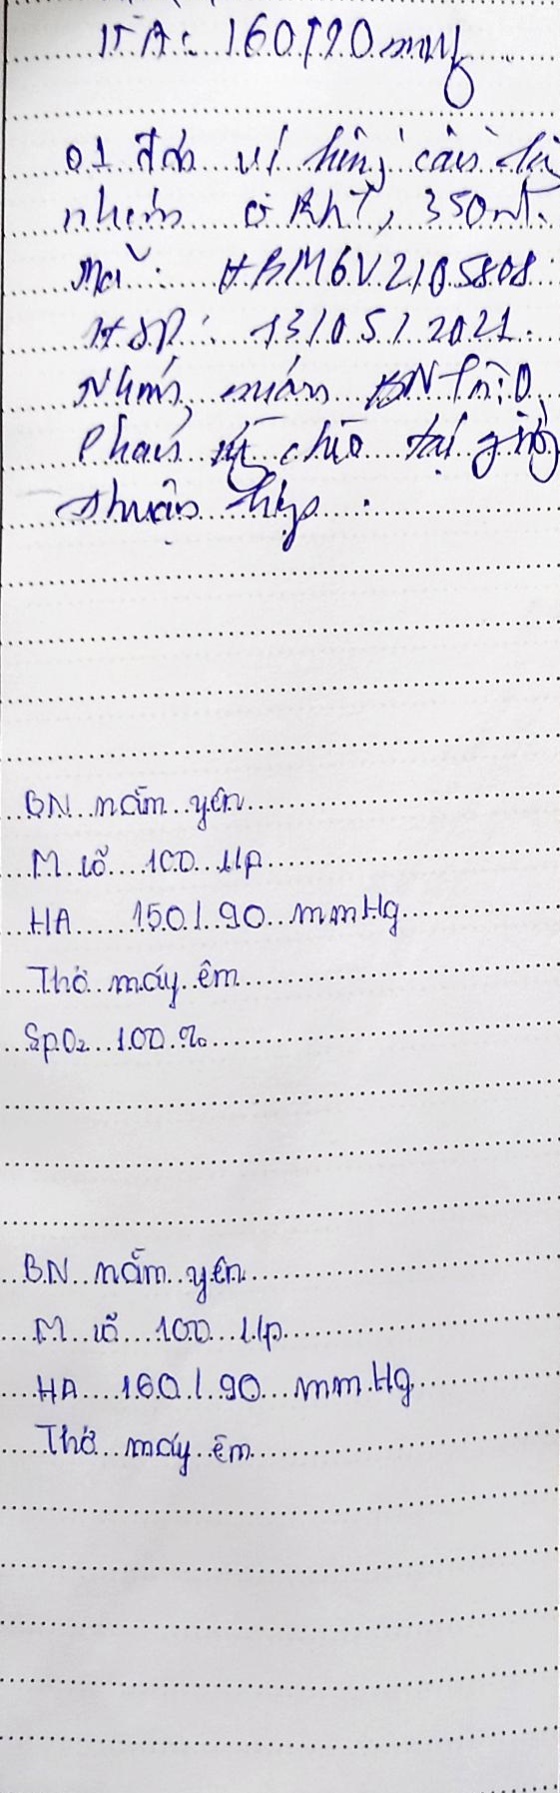 HA: 160/90 mmHg
01 đơn vị hồng cầu
nhóm O Rh+, 350ml.
Mã: HBM6V2105808
HSD: 13/05/2021.
Nhóm máu BN là: O
Phản ứng chéo tại giường
thuận hợp.
BN nằm yên
M rõ 100 l/p
HA 150/90 mmHg
Thở máy êm
SpO₂ 100%
BN nằm yên
M rõ 100 l/p
HA 160/90 mmHg
Thở máy êm